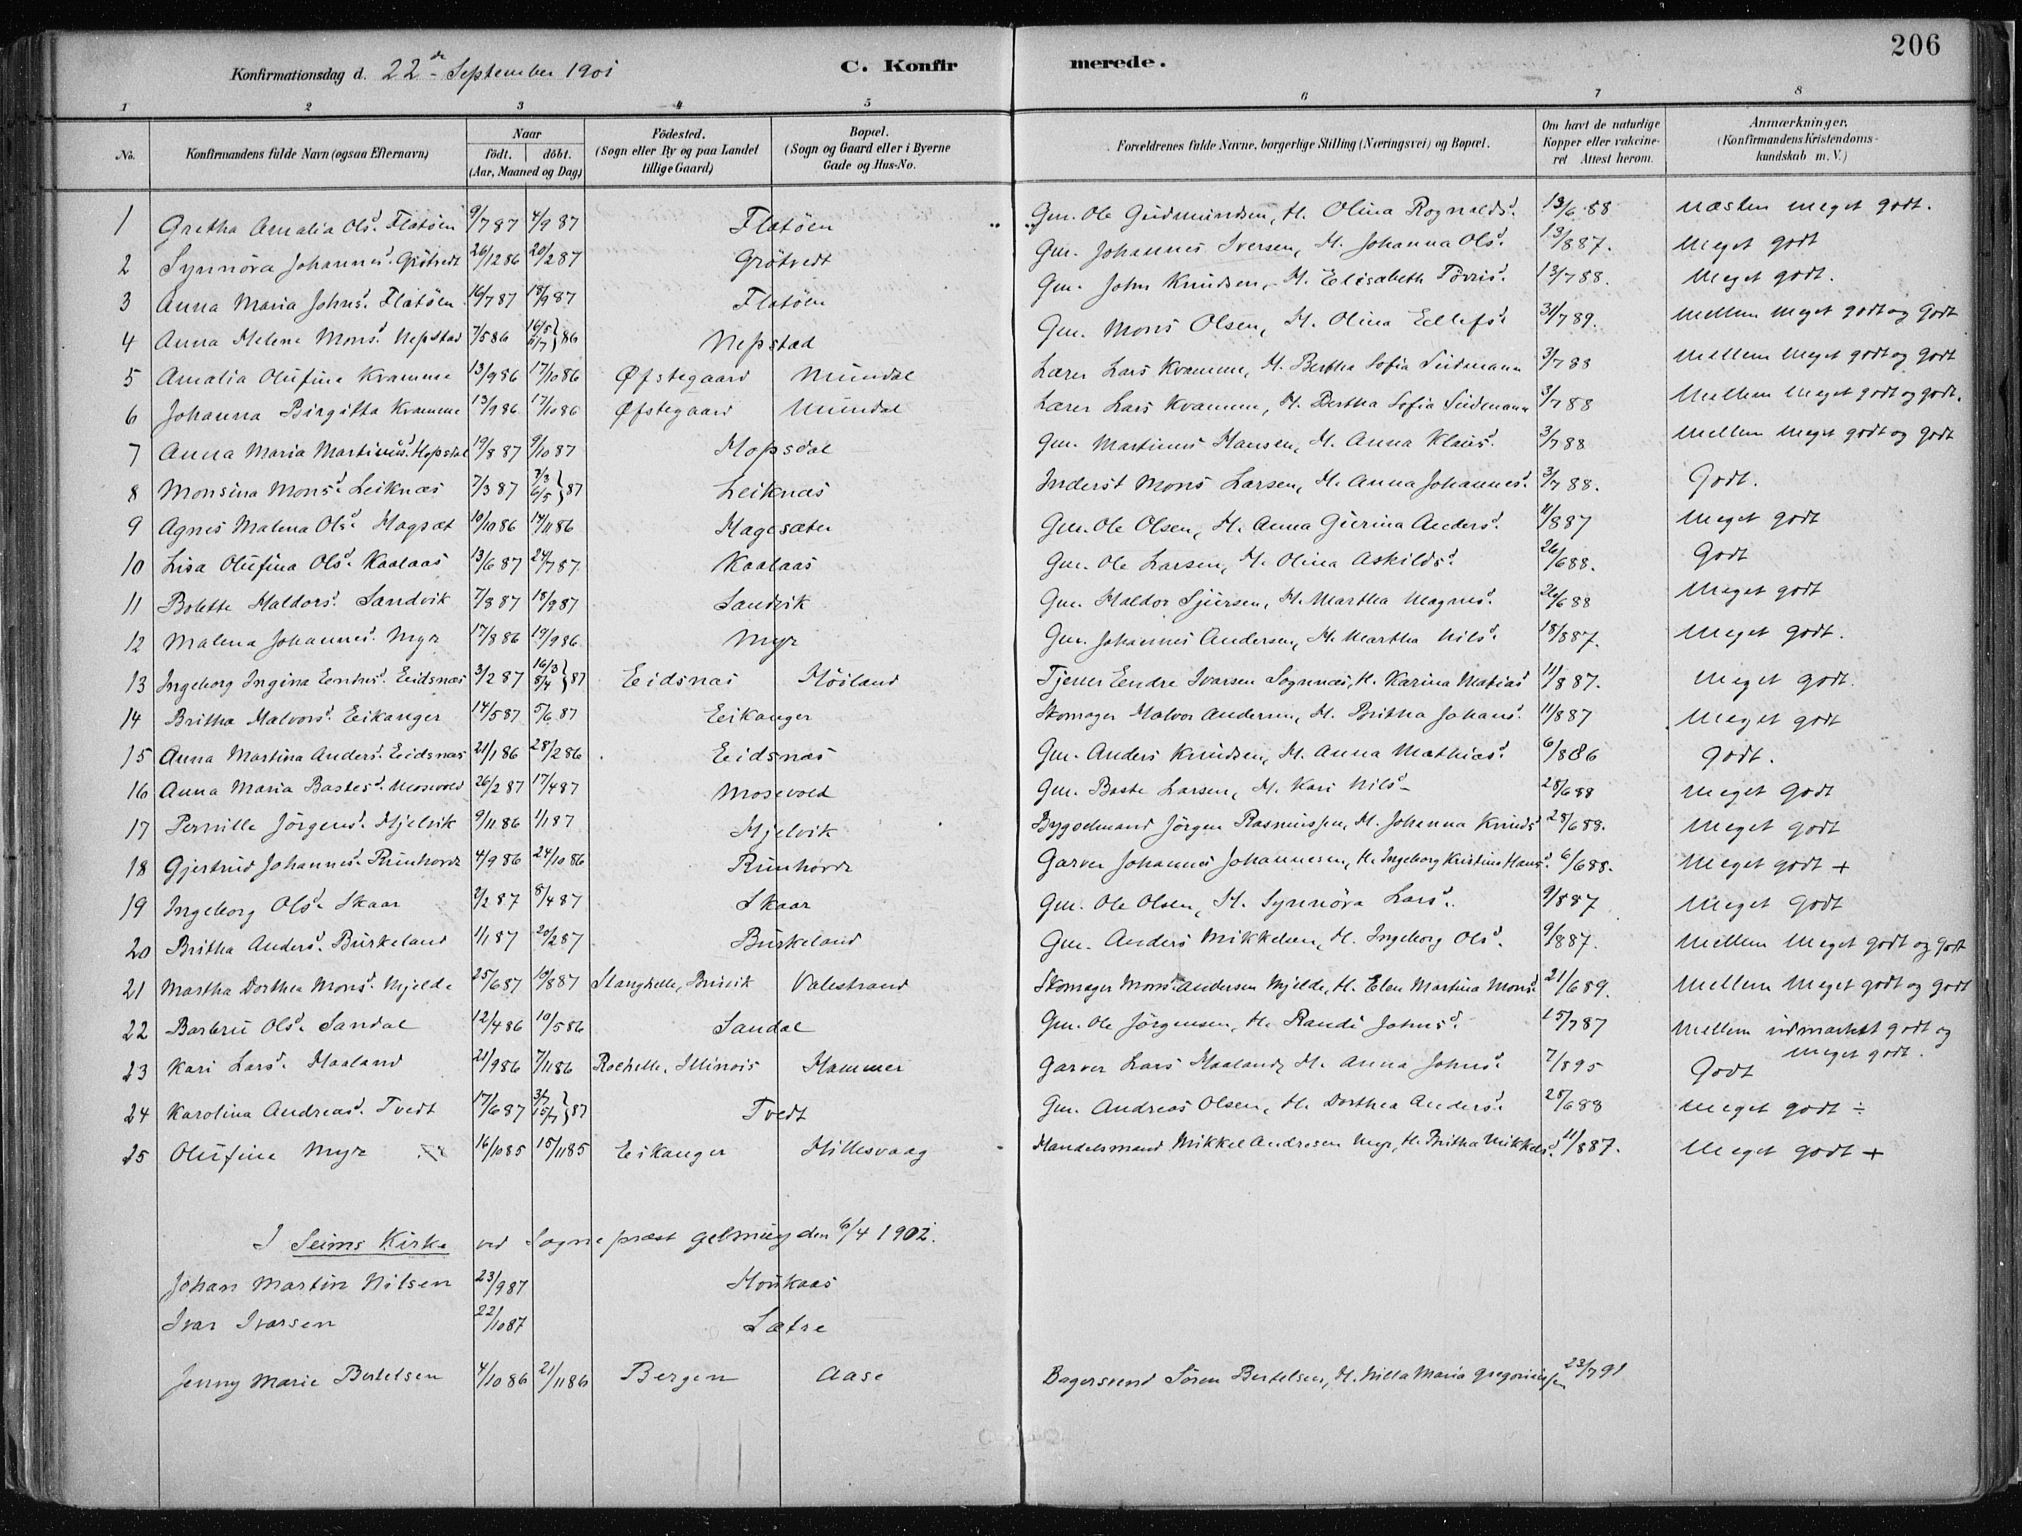 206
Konfirmationsdag d. 22de September 1901 C. Konfirmerede.
1 2 3 4 5 6 7 8
No. Konfirmandens fulde Navn (ogsaa Efternavn) Naar födt. döbt. (Aar, Maaned og Dag) Födested. (Sogn eller By og paa Landet tillige Gaard) Bopæl. (Sogn og Gaard eller i Byerne Gade og Hus-No. Forældrenes fulde Navne, borgerlige Stilling (Næringsvei) og Bopæl. Om havt de naturlige Kopper eller vakcineret Attest herom. Anmærkninger. (Konfirmandens Kristendomskundskab m. V.)
1 Gretha Amalia Olsd. Flatöen 9/7 87 4/9 87 Flatöen Gm. Ole Gudmundsen, H. Olina Rognaldsd. 13/6 88 næsten meget godt.
2 Synnöva Johannesd. Grötvedt 26/12 86 20/2 87 Grötvedt Gm. Johannes Iversen, H. Johanna Olsd. 13/8 87. Meget godt
3 Anna Maria Johnsd. Flatöen 16/7 87 18/9 87 Flatöen Gm. John Knudsen, H. Elisabeth 13/7 88. Meget godt.
4 Anna Helene Monsd. Nepstad 7/5 86 16/5 86 Nepstad Gm. Mons Olsen, H. Olina Ellefsd. 31/7 89. Mellem meget godt og godt
5 Amalia Olufine Kvamme 13/9 86 17/10 86 Øfstegaard Mundal Lærer Lars Kvamme, H. Bertha Sofia Sudmann 3/7 88 Mellem Meget godt og godt
6 Johanna Birgitta Kvamme 13/9 86 17/10 86 Øfstegaard Mundal Lærer Lars Kvamme, H. Bertha Sofia Sudmann 3/7 88 Mellem Meget godt og godt.
7 Anna Maria Martinusd. Hopsdal 19/8 87 9/10 87 Hopsdal Gm. Martinus Hansen, H. Anna Klausd. 3/7 88 Mellem meget godt og godt
8 Monsina Monsd. Leiknæs 7/3 87 7/3 6/5 } 87 Leiknæs Inderst Mons Larsen, H. Anna Johannesd. 3/7 88. Godt.
9 Agnes Malena Olsd. Hagsæt 10/10 86 14/11 86 Hagesæter Gm. Ole Olsen, H. Anna Gurina Andersd. 11/8 87 Meget godt
10 Lisa Olufina Olsd. Kaalaas 13/6 87 24/7 87 Kaalaas Gm. Ole Larsen, H. Olina Askildsd. 26/6 88. Godt
11 Bolette Haldorsd. Sandvik 7/8 87 18/9 87 Sandvik Gm. Haldor Sjursen, H. Martha Magnesd. 26/6 88 Meget godt
12 Malena Johannesd. Myr 17/8 86 19/9 86 Myr Gm. Johannes Andersen, H. Martha Nilsd. 18/8 87. Meget godt.
13 Ingeborg Ingina Endresd. Eidsnæs 3/2 87 16/3 8/4 } 87 Eidsnæs Höiland Tjener Endre Ivarsen Sognnæs, H. Karina Matiasd 11/8 87. Meget godt.
14 Britha Halvorsd. Eikanger 14/5 87 5/6 87 Eikanger Skomager Halvor Andersen, H. Britha Johansd. 11/8 87 Meget godt
15 Anna Martina Andersd. Eidsnæs 21/1 86 28/2 86 Eidsnæs Gm. Anders Knudsen, H. Anna Mathiasd. 6/8 86 godt.
16 Anna Maria Bastesd. Mosevold 26/2 87 17/4 87 Mosevold Gm. Baste Larsen, H. Kari Nilsd 28/6 88 Meget godt
17 Pernille Jörgensd. Hjelvik 9/11 86 1/1 87 Hjelvik Bygselmand Jörgen Rasmussen, H. Johanna Knudsd 28/6 88. Meget godt
18 Gjertrud Johannesd. Runhovde 4/9 86 24/10 86 Runhovde Garver Johannes Johannesen, H. Ingeborg Kristine Hansd. 6/6 88. Meget godt +
19 Ingeborg Olsd. Skaar 2/2 87 8/4 87 Skaar Gm. Ole Olsen, H. Synnöva Larsd. 9/8 87 Meget godt
20 Britha Andersd. Burkeland 1/1 87 20/2 87 Burkeland Gm. Anders Mikkelsen, H. Ingeborg Olsd. 9/8 87. Mellem Meget godt og godt
21 Martha Dorthea Monsd. Mjelde 25/6 87 10/8 87 Stanghelle, Bruvik Valestrand Skomager Mons Andersen Mjelde, H. Elen Martina Monsd. 21/6 89. Mellem Meget godt og godt
22 Barbru Olsd. Sandal 12/4 86 10/5 86 Sandal Gm. Ole Jörgensen, H. Randi Johnsd. 15/7 87 Mellem udmærket godt og meget godt.
23 Kari Larsd. Haaland 21/9 86 7/11 86 Rochelle, Illinois Hammer Garver Lars Haaland, H. Anna Johnsd. 7/8 95 Godt
24 Karolina Andreasd. Tvedt 17/6 87 3/7 15/7 } 87 Tvedt Gm. Andreas Olsen, H. Dorthea Andersd. 25/6 88 Meget godt ÷
25 Olufine Myr 16/10 85 15/11 85 Eikanger Hillesvaag Handelsmand Mikkel Andresen Myr, H. Britha Mikkelsd. 11/8 87. Meget godt +
I Seims Kirke ved Sogneprest Gelmuyden 6/4 1902.
Johan Martin Nilsen 23/9 87 Houkaas
Ivar Ivarsen 22/10 87 Sætre
Jenny Marie Bertelsen 4/10 86 21/11 86 Bergen Aase Bagersvend Sören Bertelsen, H. Nilla Maria Gregoriusen 23/7 91